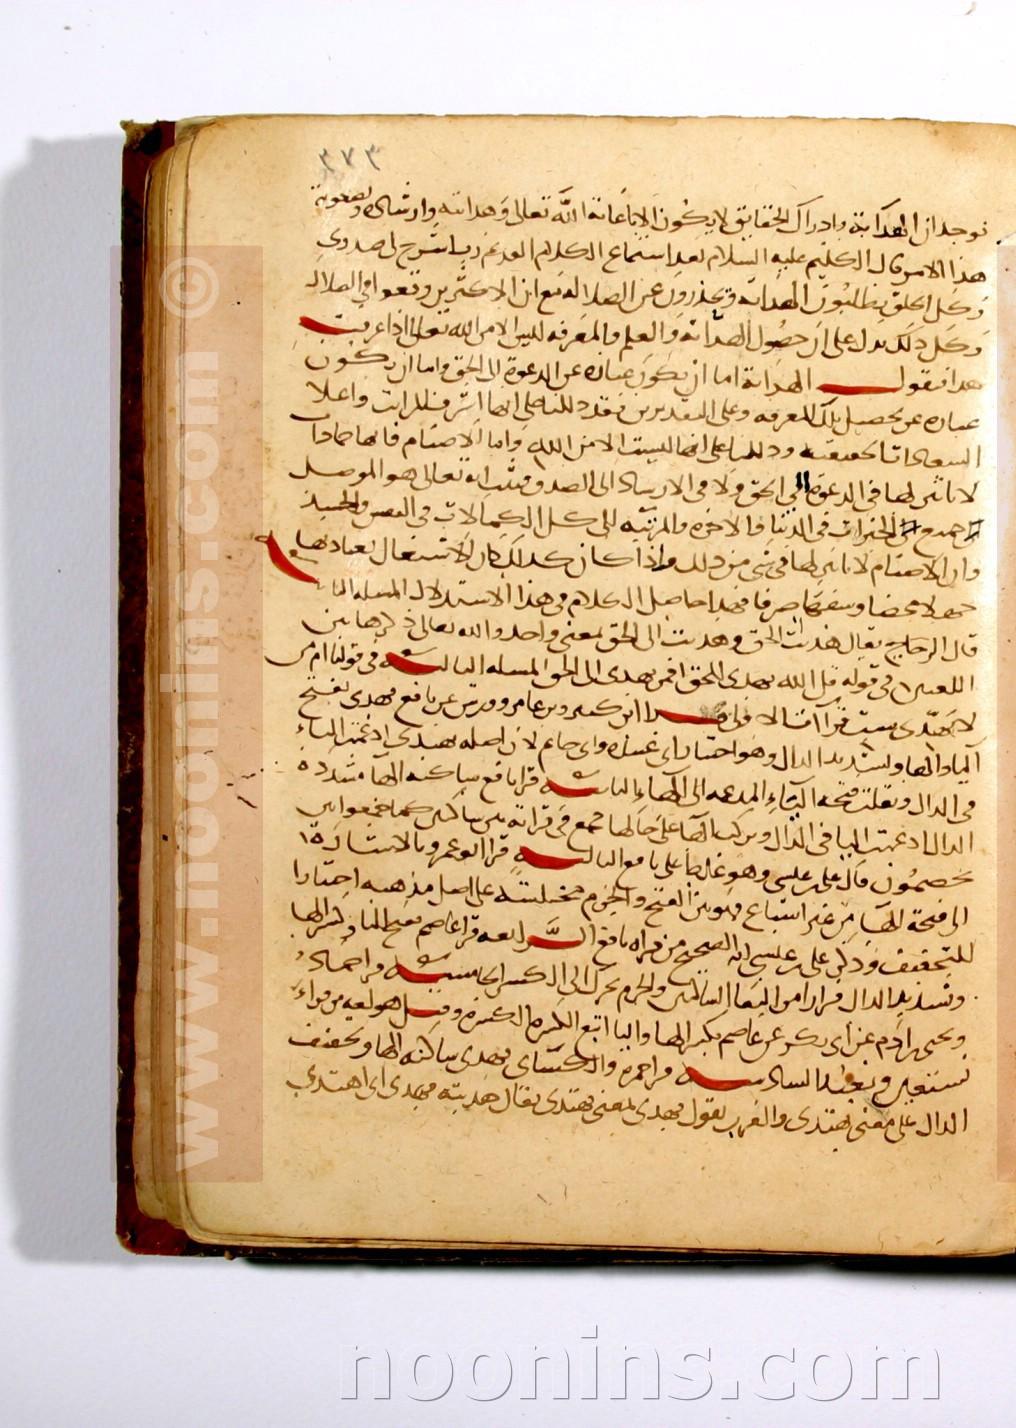 ٣٧٣
نوجد ان الهداية وادراك الحقايق لا يكون الا باعانة الله تعالى وهدايته وارشاده ولصعوبة
هذا الامر قال الكليم عليه السلام بعد استماع الكلام القديم رب اشرح لي صدري
وكل الخلق يطلبون الهداية ويحذرون عن الضلالة مع ان الاكثرين وقعوا في الضلالة
وكل ذلك يدل على ان حصول الهداية والعلم والمعرفة ليس الا من الله تعالى اذا عرفت
هذا فنقول الهداية اما ان يكون عبارة عن الدعوة الى الحق واما ان يكون
عبارة عن تحصيل تلك المعرفة وعلى التقديرين فقد دللنا على انها اشرف المراتب واعلا
السعادات الحقيقية ودللنا على انها ليست الا من الله واما الاصنام فانها جمادات
لا تاثير لها في الدعوة الى الحق ولا في الارشاد الى الصدق فثبت انه تعالى هو الموصل
الى جميع الخيرات في الدنيا والاخرة والمرشد الى كل الكمالات في النفس والجسد
وان الاصنام لا تاثير لها في شي من ذلك واذا كان كذلك كان الاشتغال بعبادتها
جهلا محضا وسفها صرفا فهذا حاصل الكلام في هذا الاستدلال المسلة الثانية
قال الزجاج يقال هديت الحق وهديت الى الحق بمعنى واحد والله تعالى ذكر هاتين
اللغتين في قوله قل الله يهدي للحق افمن يهدي الى الحق المسلة الثالثة في قوله ام من
لا يهدي ست قراآت الاولى قرا ابن كثير وابن عامر وورش عن نافع يهدي بفتح
اليا والها وتشديد الدال وهو اختيار ابي عبيدة وابي حاتم لان اصله يهتدي ادغمت التاء
في الدال ونقلت فتحة التاء المدغمة الى الهاء الثانية قرا نافع ساكنة الهاء مشددة
الدال ادغمت التا في الدال وتركت الهاء على حالها فجمع في قراته بين ساكنين كما جمعوا في
يخصمون قال علي بن عيسى وهو غلط على نافع الثالثة قرا ابو عمرو بالاشارة
الى فتحة الهاء من غير اشباع فهو بين الفتح والجزم مختلسة على اصل مذهبه اختيارا
للتخفيف وذكر علي بن عيسى انه الصحيح من قراة نافع الرابعة قرا عاصم بفتح اليا وكسر الها
وتشديد الدال فرارا من التقاء الساكنين والجزم يحرك الى الكسر الخامسة قرا حماد
ويحيى بن ادم عن ابي بكر عن عاصم بكسر الها واليا اتبع الكسرة الكسرة وقيل هو لغة من قراء
نستعين ونعبد السادسة قرا حمزة والكسائي يهدي ساكنة الها وتخفيف
الدال على معنى يهتدي والعرب تقول يهدي بمعنى يهتدي يقال هديته فهدي اي اهتدي
www.noonins.com ©
noonins.com